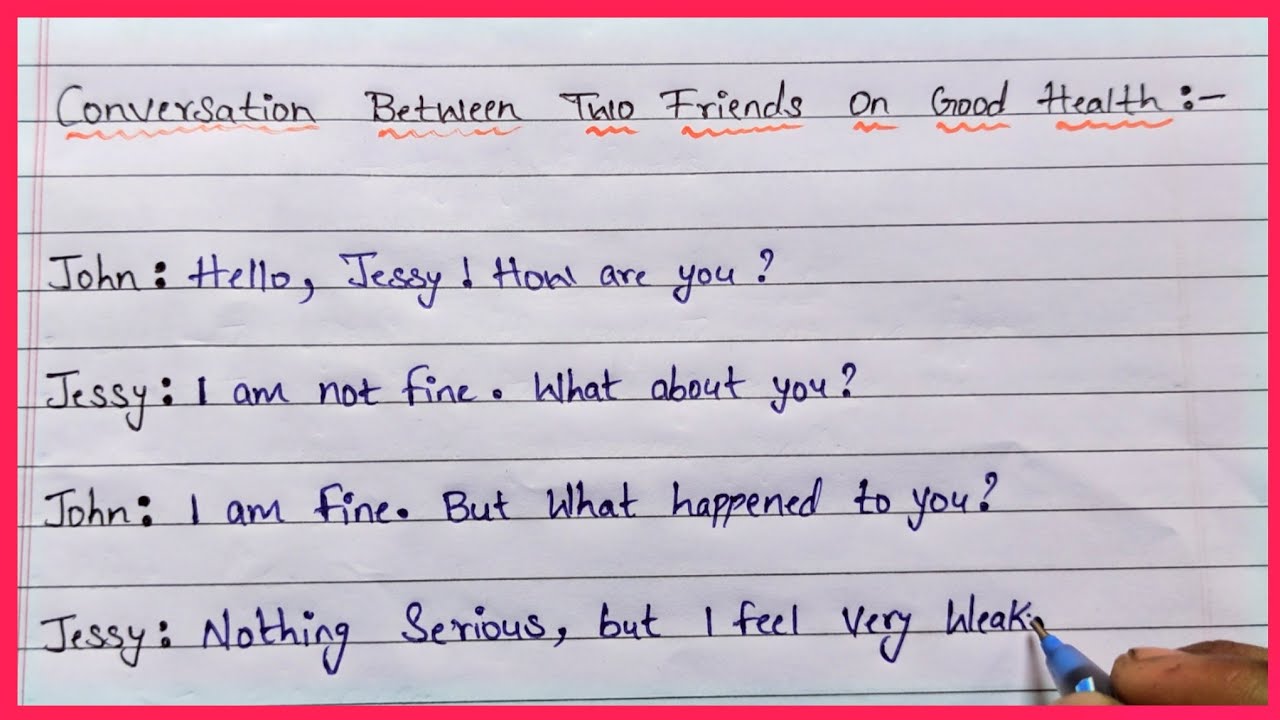 Conversation Between Two Friends On Good Health:-
John: Hello, Jessy! How are you?
Jessy: I am not fine. What about you?
John: I am fine. But What happened to you?
Jessy: Nothing Serious, but I feel Very Weak.